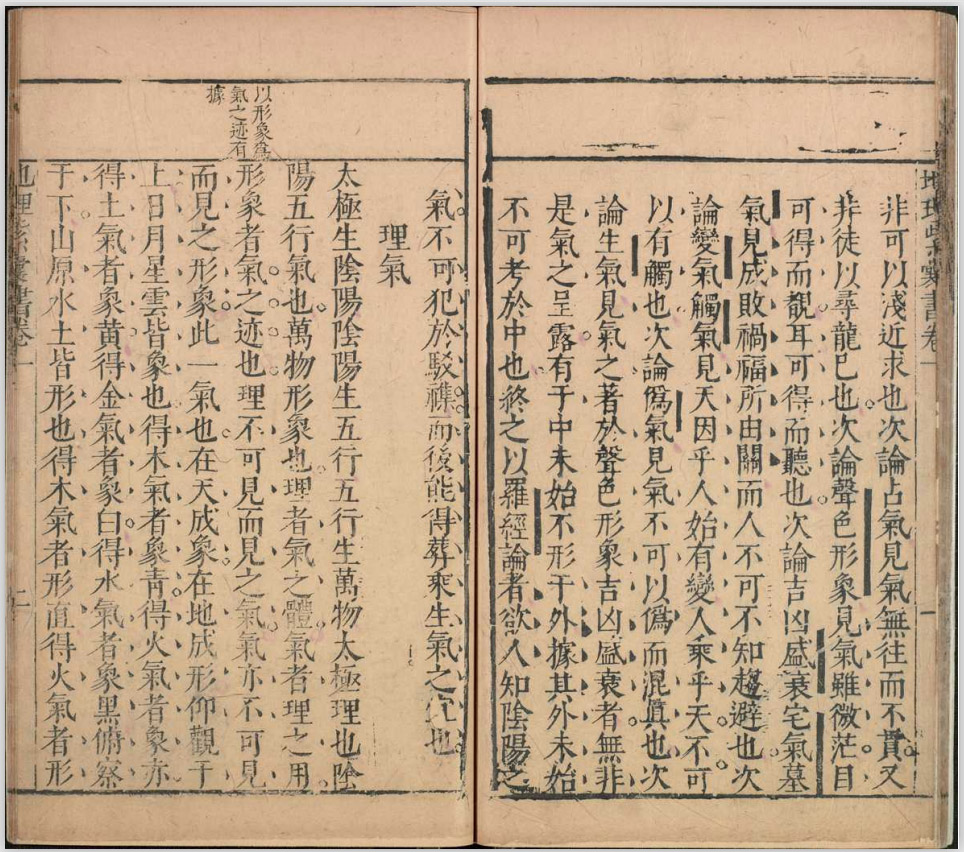 非可以淺近求也次論占氣見氣無往而不貫又
非徒以尋龍已也次論聲色形象見氣雖微茫目
可得而覩耳可得而聽也次論吉凶盛衰宅氣墓
氣見成敗禍福所由關而人不可不知趨避也次
論變氣觸氣見天因乎人始有變人乘乎天不可
以有觸也次論僞氣見氣不可以僞而混眞也次
論生氣見氣之著於聲色形象吉凶盛衰者無非
是氣之呈露有于中未始不形于外據其外未始
不可考於中也終之以羅經論者欲人知陰陽之
地理紫囊書卷一
一
氣不可犯於駁襍而後能得葬乘生氣之穴也
理氣
太極生陰陽陰陽生五行五行生萬物太極理也陰
陽五行氣也萬物形象也理者氣之體氣者理之用
形象者氣之迹也理不可見而見之氣氣亦不可見
而見之形象此一氣也在天成象在地成形仰觀于
上日月星雲皆象也得木氣者象青得火氣者象赤
得土氣者象黃得金氣者象白得水氣者象黑俯察
于下山原水土皆形也得木氣者形直得火氣者形
以形象爲
氣之迹有
據
地理紫囊書卷一
二